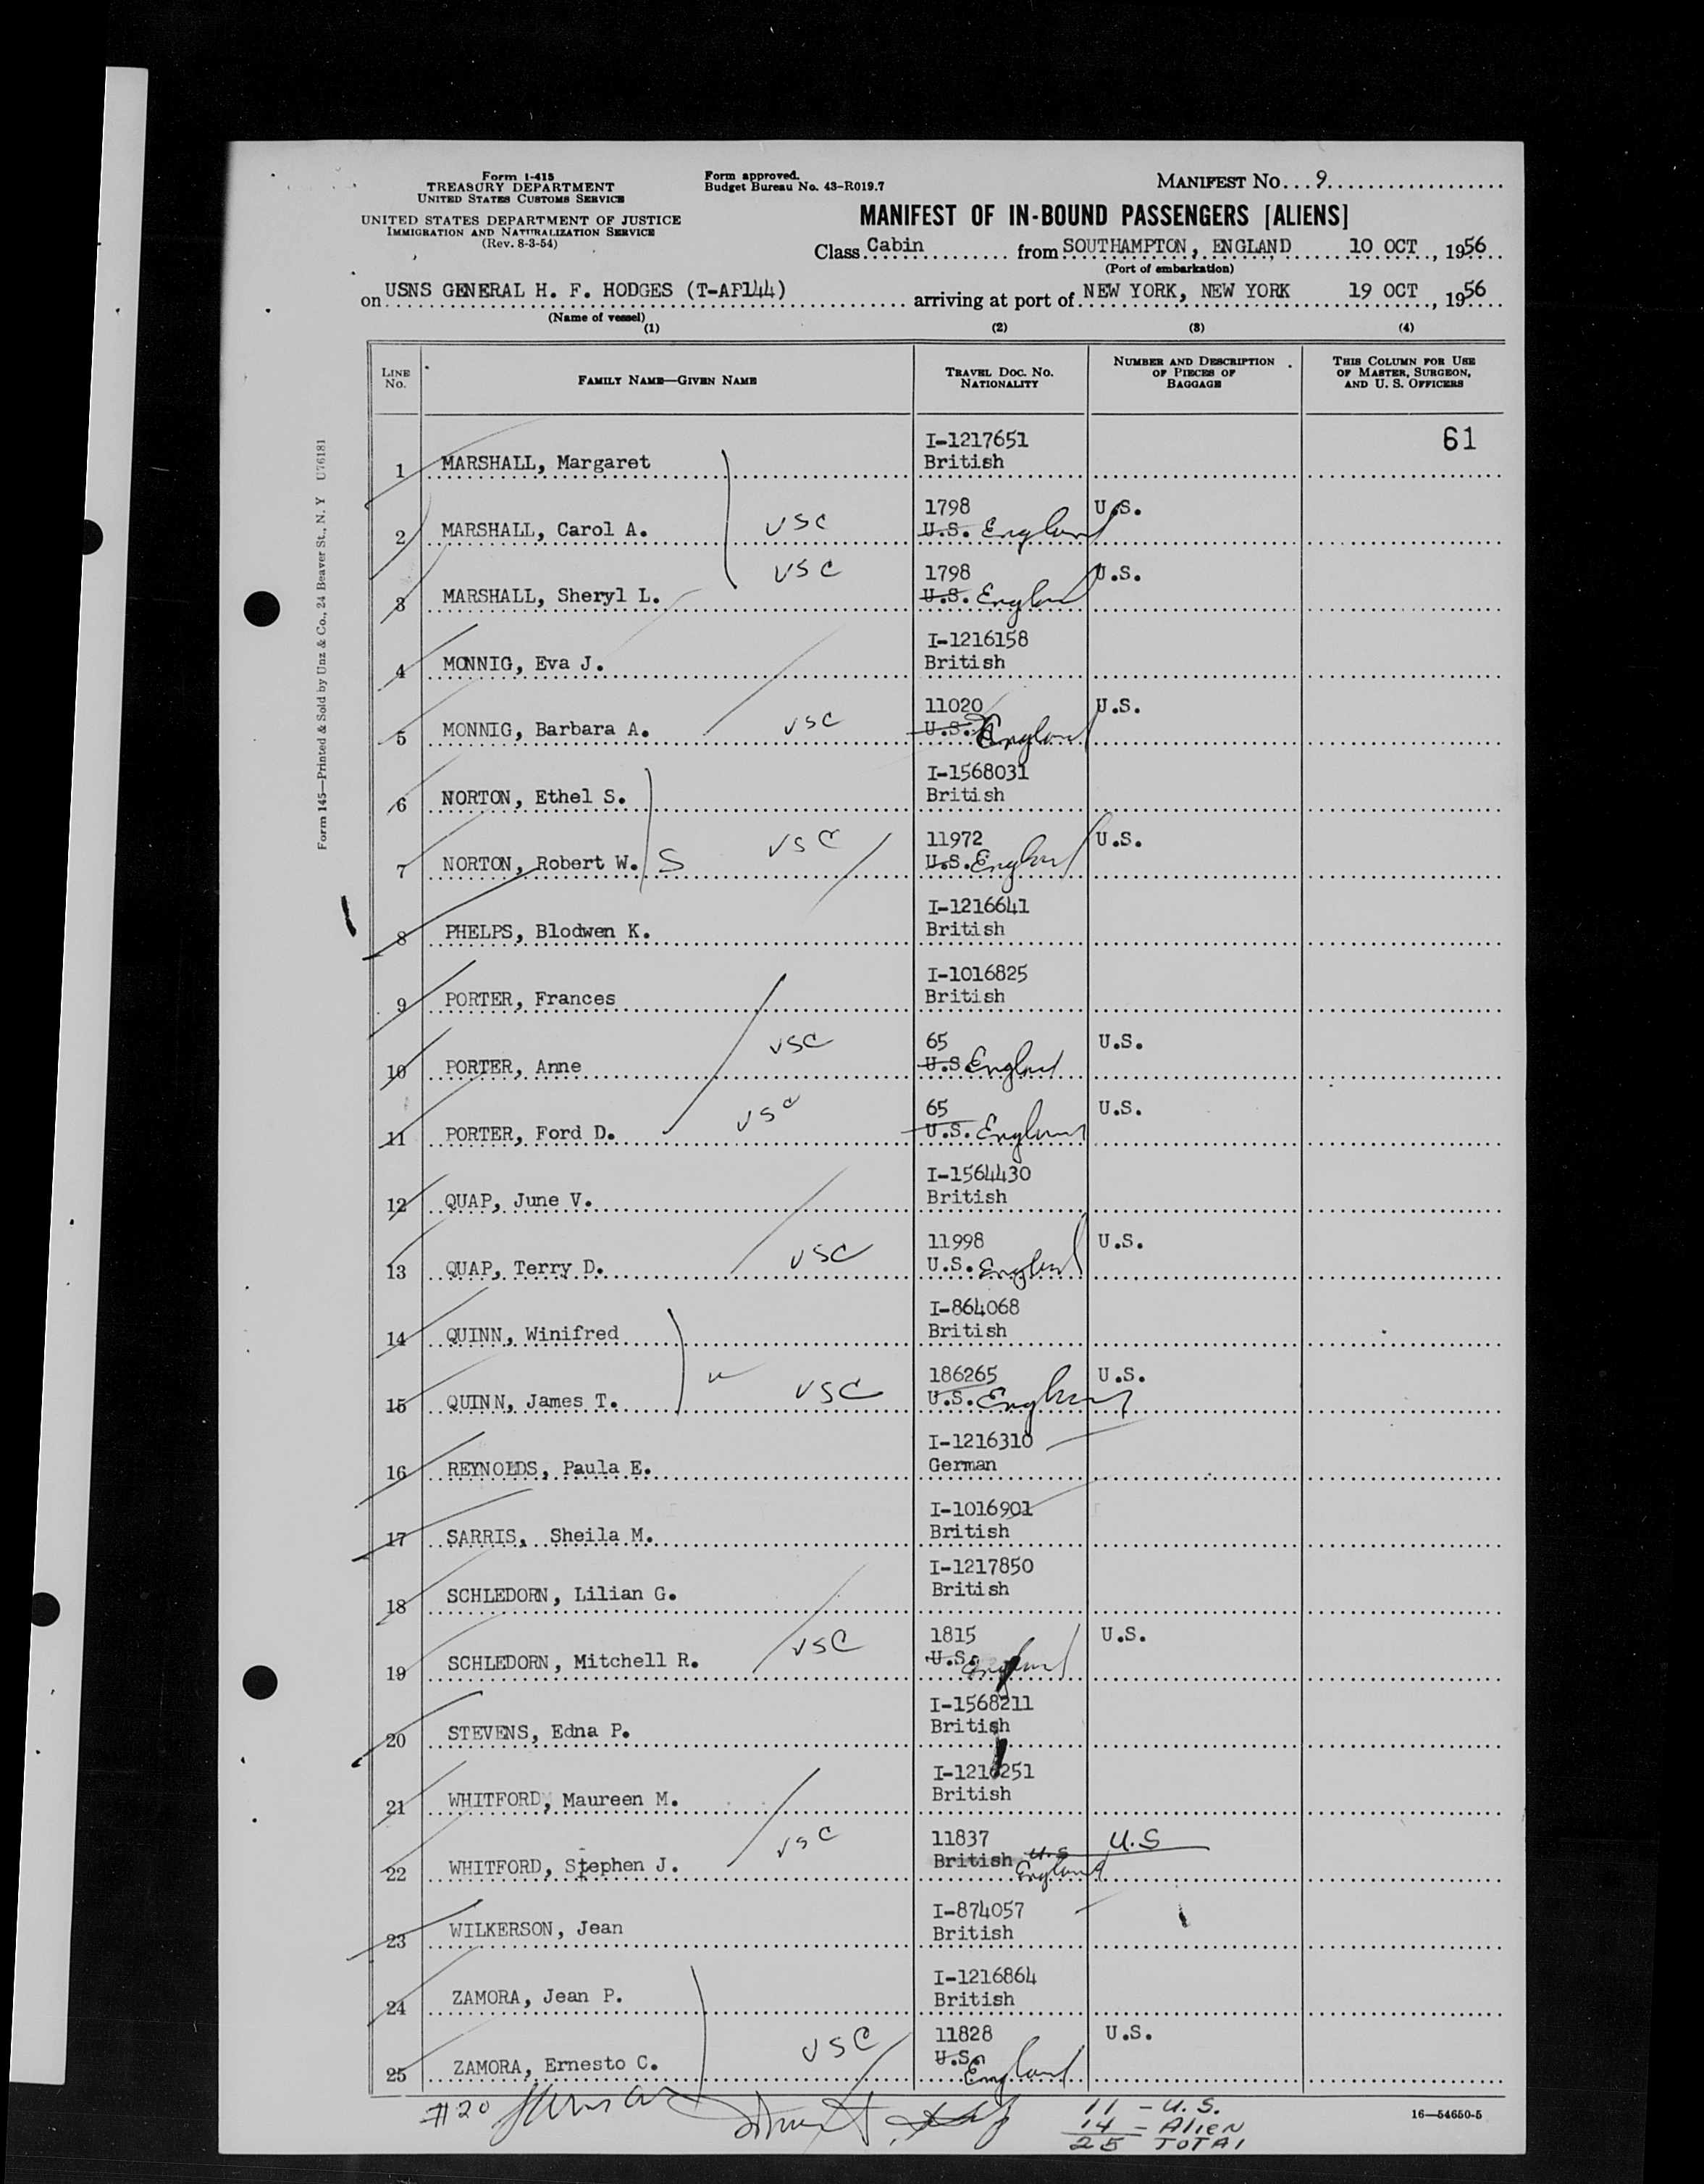 Form I-415
TREASURY DEPARTMENT
UNITED STATES CUSTOMS SERVICE
UNITED STATES DEPARTMENT OF JUSTICE
IMMIGRATION AND NATURALIZATION SERVICE
(Rev. 8-3-54)
Form approved.
Budget Bureau No. 43-R019.7
MANIFEST No. 9
MANIFEST OF IN-BOUND PASSENGERS [ALIENS]
Class Cabin from SOUTHAMPTON, ENGLAND 10 OCT, 1956
(Port of embarkation)
on USNS GENERAL H. F. HODGES (T-AP144) arriving at port of NEW YORK, NEW YORK 19 OCT, 1956
(Name of vessel)
(1) (2) (3) (4)
LINE No. FAMILY NAME—GIVEN NAME TRAVEL DOC. No. NATIONALITY NUMBER AND DESCRIPTION OF PIECES OF BAGGAGE THIS COLUMN FOR USE OF MASTER, SURGEON, AND U. S. OFFICERS
61
I-1217651
1 MARSHALL, Margaret British
1798 U.S.
2 MARSHALL, Carol A. USC U.S. England
1798 U.S.
3 MARSHALL, Sheryl L. USC U.S. England
I-1216158
4 MONNIG, Eva J. British
11020 U.S.
5 MONNIG, Barbara A. USC U.S. England
I-1568031
6 NORTON, Ethel S. British
11972 U.S.
7 NORTON, Robert W. S USC U.S. England
I-1216641
8 PHELPS, Blodwen K. British
I-1016825
9 PORTER, Frances British
65 U.S.
10 PORTER, Anne USC U.S. England
65 U.S.
11 PORTER, Ford D. USC U.S. England
I-1564430
12 QUAP, June V. British
11998 U.S.
13 QUAP, Terry D. USC U.S. England
I-864068
14 QUINN, Winifred British
186265 U.S.
15 QUINN, James T. USC U.S. England
I-1216310
16 REYNOLDS, Paula E. German
I-1016901
17 SARRIS, Sheila M. British
I-1217850
18 SCHLEDORN, Lilian G. British
1815 U.S.
19 SCHLEDORN, Mitchell R. USC U.S. England
I-1568211
20 STEVENS, Edna P. British
I-1216251
21 WHITFORD, Maureen M. British
11837 U.S
22 WHITFORD, Stephen J. USC British U.S England
I-874057
23 WILKERSON, Jean British
I-1216864
24 ZAMORA, Jean P. British
11828 U.S.
25 ZAMORA, Ernesto C. USC U.S. England
#20
11 - U.S.
14 - Alien
25 TOTAL
16—54650-5
Form 145—Printed & Sold by Unz & Co., 24 Beaver St., N. Y U76181